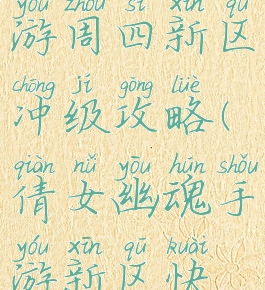 yóu zhōu sì xīn qū
游周四新区
chōng jí gōng lüè
冲级攻略(
qiàn nǚ yōu hún shǒu
倩女幽魂手
yóu xīn qū kuài
游新区快